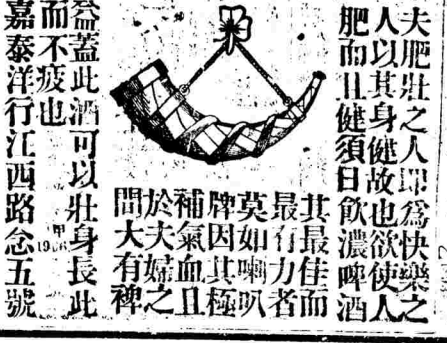 夫肥壯之人即爲快樂之
人以其身健故也欲使人
肥而且健須日飲濃啤酒
其最佳而
最有力者
莫如喇叭
牌因其極
補氣血且
於夫婦之
間大有裨
益蓋此酒可以壯身長此
而不疲也
嘉泰洋行江西路念五號